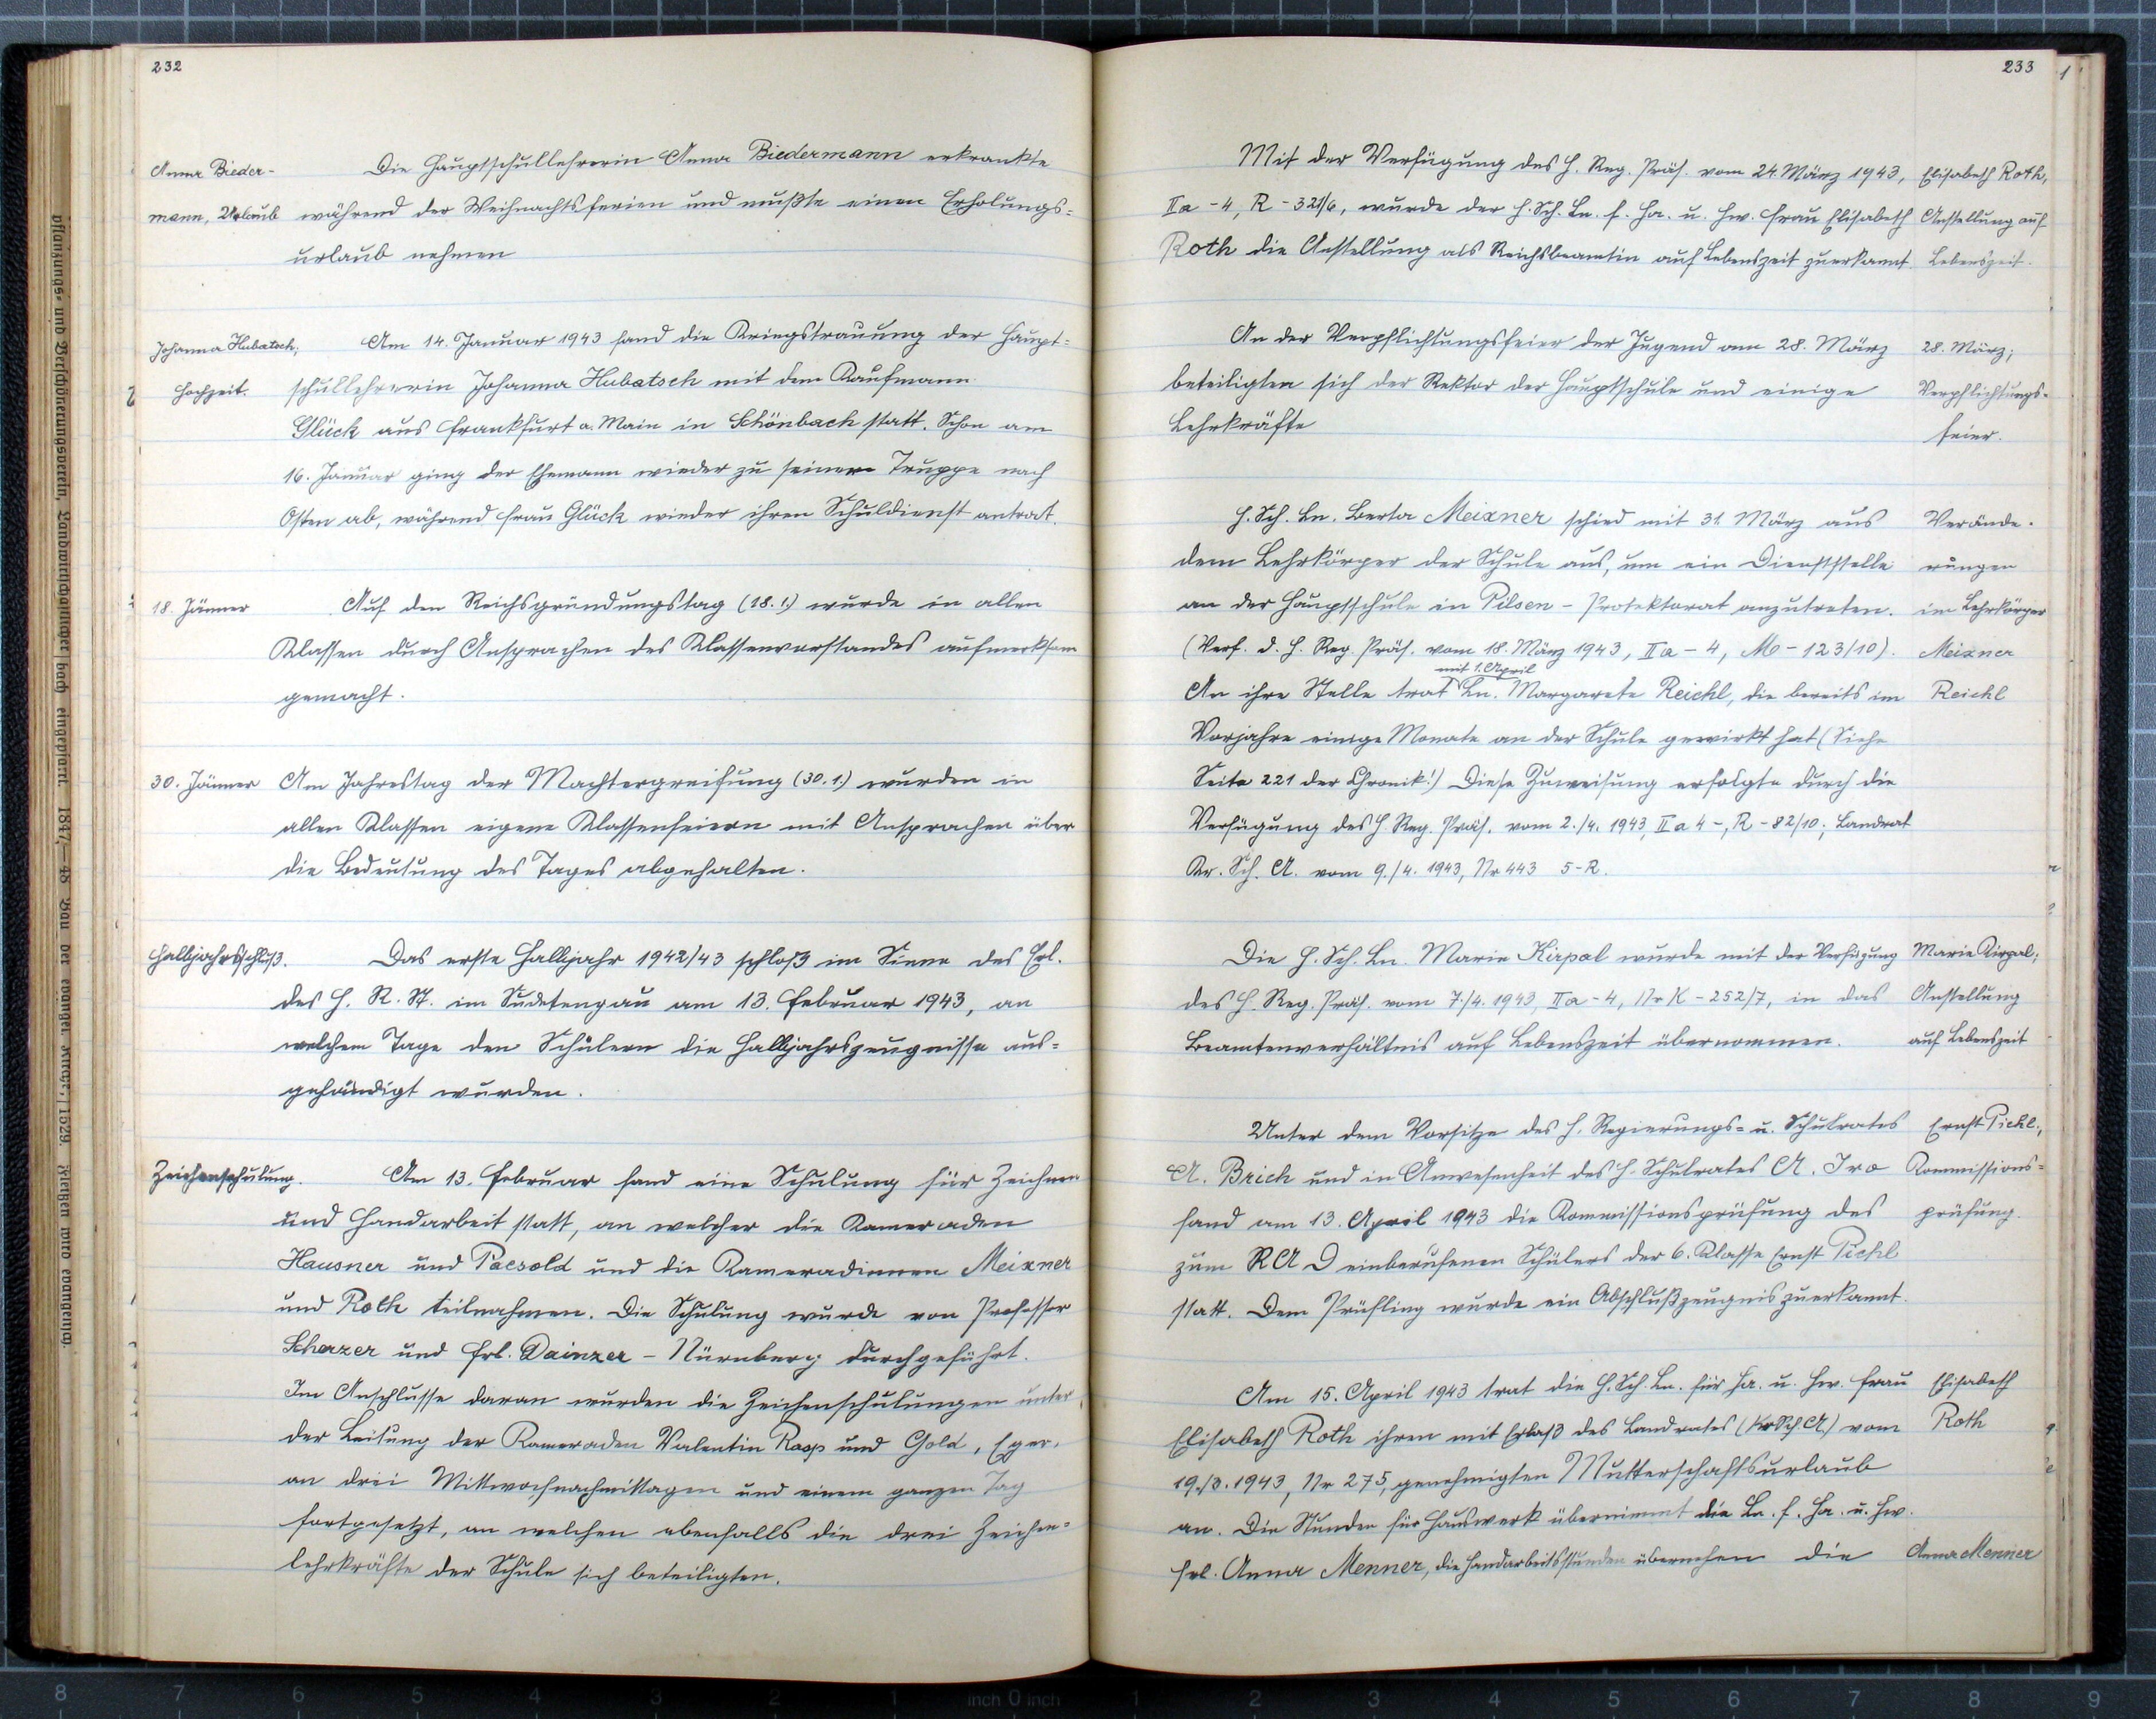 232
Anna Bieder-
mann, Urlaub
Die Hauptschullehrerin Anna Biedermann erkrankte
während der Weihnachtsferien und mußte einen Erholungs=
urlaub nehmen
Johanna Hubatsch;
Hochzeit.
Am 14. Januar 1943 fand die Kriegstrauung der Haupt=
schullehrerin Johanna Hubatsch mit dem Kaufmann
Glück aus Frankfurt a. Main in Schönbach statt. Schon am
16. Januar ging der Ehemann wieder zu seiner Truppe nach
Osten ab, während Frau Glück wieder ihren Schuldienst antrat.
18. Jänner
Auf den Reichsgründungstag (18.1.) wurde in allen
Klassen durch Ansprachen des Klassenvorstandes aufmerksam
gemacht.
30. Jänner
Am Jahrestag der Machtergreifung (30.1.) wurden in
allen Klassen eigene Klassenfeiern mit Ansprachen über
die Bedeutung des Tages abgehalten.
Halbjahrsschluß.
Das erste Halbjahr 1942/43 schloß im Sinne des Erl.
des H. R. St. im Sudetengau am 13. Februar 1943, an
welchem Tage den Schülern die Halbjahrszeugnisse aus=
gehändigt wurden.
Zeichenschulung.
Am 13. Februar fand eine Schulung für Zeichnen
und Handarbeit statt, an welcher die Kameraden
Hausner und Paesold und die Kameradinnen Meixner
und Roth teilnahmen. Die Schulung wurde von Professor
Scherzer und Frl. Dainzer - Nürnberg durchgeführt.
Im Anschlusse daran wurden die Zeichenschulungen unter
der Leitung der Kameraden Valentin Rasp und Gold, Eger,
an drei Mittwochnachmittagen und einem ganzen Tag
fortgesetzt, an welchen ebenfalls die drei Zeichen=
lehrkräfte der Schule sich beteiligten.
233
Mit der Verfügung des H. Reg. Präs. vom 24. März 1943,
IIa - 4, R - 321/6, wurde der H. Sch. Ln. f. Ha. u. Hw. Frau Elisabeth
Roth die Anstellung als Reichsbeamtin auf Lebenszeit zuerkannt.
Elisabeth Roth,
Anstellung auf
Lebenszeit.
An der Verpflichtungsfeier der Jugend am 28. März
beteiligten sich der Rektor der Hauptschule und einige
Lehrkräfte
28. März;
Verpflichtungs-
feier.
H. Sch. Ln. Berta Meixner schied mit 31. März aus
dem Lehrkörper der Schule aus, um ein Dienststelle
an der Hauptschule in Pilsen - Protektorat anzutreten.
(Verf. d. H. Reg. Präs. vom 18. März 1943, IIa - 4, M - 123/10).
mit 1. April
An ihre Stelle trat Ln. Margarete Reichl, die bereits im
Vorjahre einige Monate an der Schule gewirkt hat (Siehe
Seite 221 der Chronik!) Diese Zuweisung erfolgte durch die
Verfügung des H. Reg. Präs. vom 2./4. 1943, IIa 4 -, R - 82/10; Landrat
Kr. Sch. A. vom 9./4. 1943, Nr 443 5-R.
Verände-
rungen
im Lehrkörper
Meixner
Reichl
Die H. Sch. Ln. Marie Kirpal wurde mit der Verfügung
des H. Reg. Präs. vom 7./4. 1943, IIa - 4, Nr K - 252/7, in das
Beamtenverhältnis auf Lebenszeit übernommen.
Marie Kirpal;
Anstellung
auf Lebenszeit
Unter dem Vorsitze des H. Regierungs= u. Schulrates
A. Brich und in Anwesenheit des H. Schulrates A. Ira
fand am 13. April 1943 die Kommissionsprüfung des
zum RAD einberufenen Schülers der 6. Klasse Ernst Pichl
statt. Dem Prüfling wurde ein Abschlußzeugnis zuerkannt.
Ernst Pichl;
Kommissions=
prüfung.
Am 15. April 1943 trat die H. Sch. Ln. für Ha. u. Hw. Frau
Elisabeth Roth ihren mit Erlaß des Landrates (KrSchA.) vom
19./3. 1943, Nr 275, genehmigten Mutterschaftsurlaub
an. Die Stunden für Hauswerk übernimmt die Ln. f. Ha. u. Hw.
Frl. Anna Menner, die Handarbeitsstunden übernehmen die
Elisabeth
Roth
Anna Menner